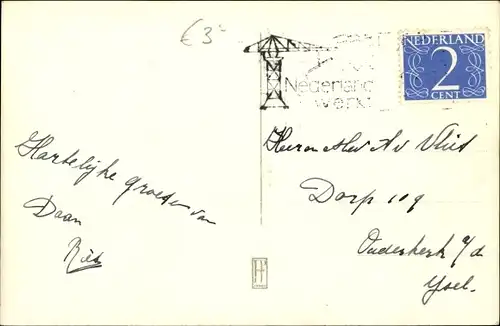 € 3-
NEDERLAND
2
CENT
Nederland
werkt
Hartelijke groeten van
Daan
Riet
Heer en Mev A v Vliet
Dorp 109
Ouderkerk a/d
Ysel.
H